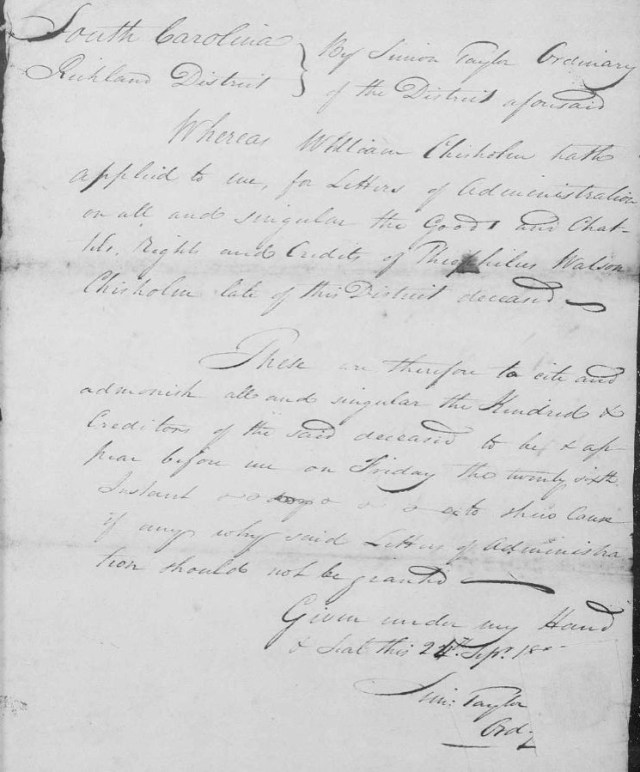 South Carolina
Richland District
By Simon Taylor Ordinary
of the District aforesaid
Whereas William Chisholm hath
applied to me, for Letters of Administration
on all and singular the Goods and Chat-
tles, Rights and Credits of Theophilus Watson
Chisholm late of this District deceased
These are therefore to cite and
admonish all and singular the Kindred &
Creditors of the said deceased to be & ap-
pear before me on Friday the twenty sixth
Instant to shew Cause
if any, why said Letters of Administra
tion should not be granted
Given under my Hand
& Seal this Sepr. 18
Sim: Taylor
Ordy